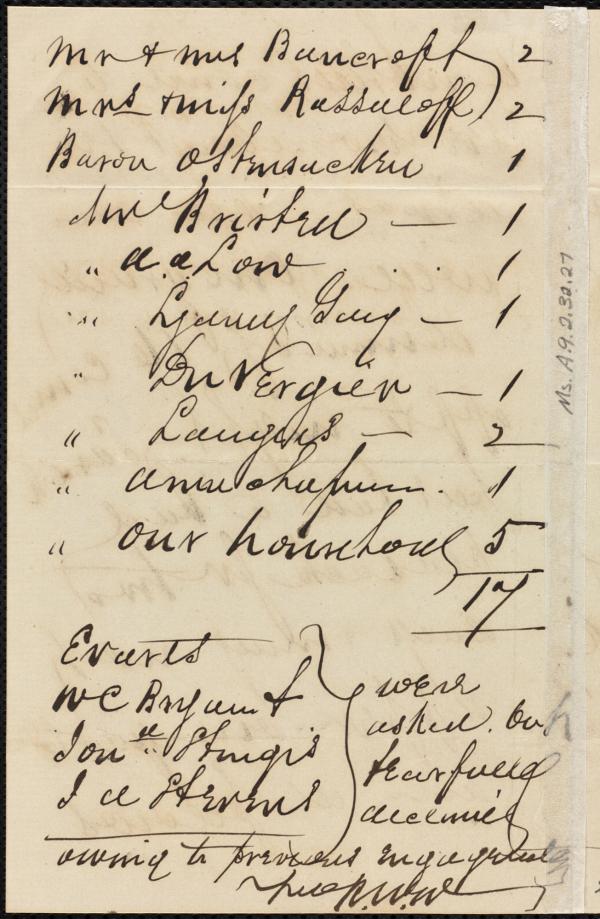 Mr & Mrs Bancroft 2
Mrs & Miss Russuloff 2
Baron Ostensacken 1
Mr Bristed — 1
" A. A. Low 1
" Sydney Gay — 1
" DuVergier — 1
" Laugels — 2
" Anne Chapman. 1
" our household 5
17
Evarts
W C Bryant
Jon Sturgis
J A Stevens
were
asked. but
tearfully
declined
owing to previous engagements
Ms. A.9.2.32.27